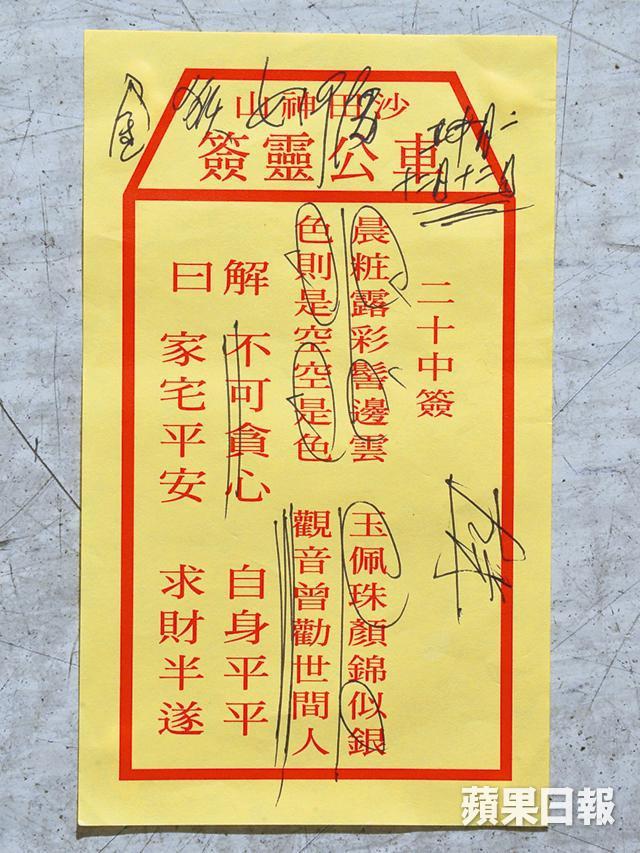 沙田神山
車公靈簽
二十中簽
晨粧露彩髻邊雲 玉佩珠顏錦似銀
色則是空空是色 觀音曾勸世間人
解 不可貪心 自身平平
曰 家宅平安 求財半遂
蘋果日報